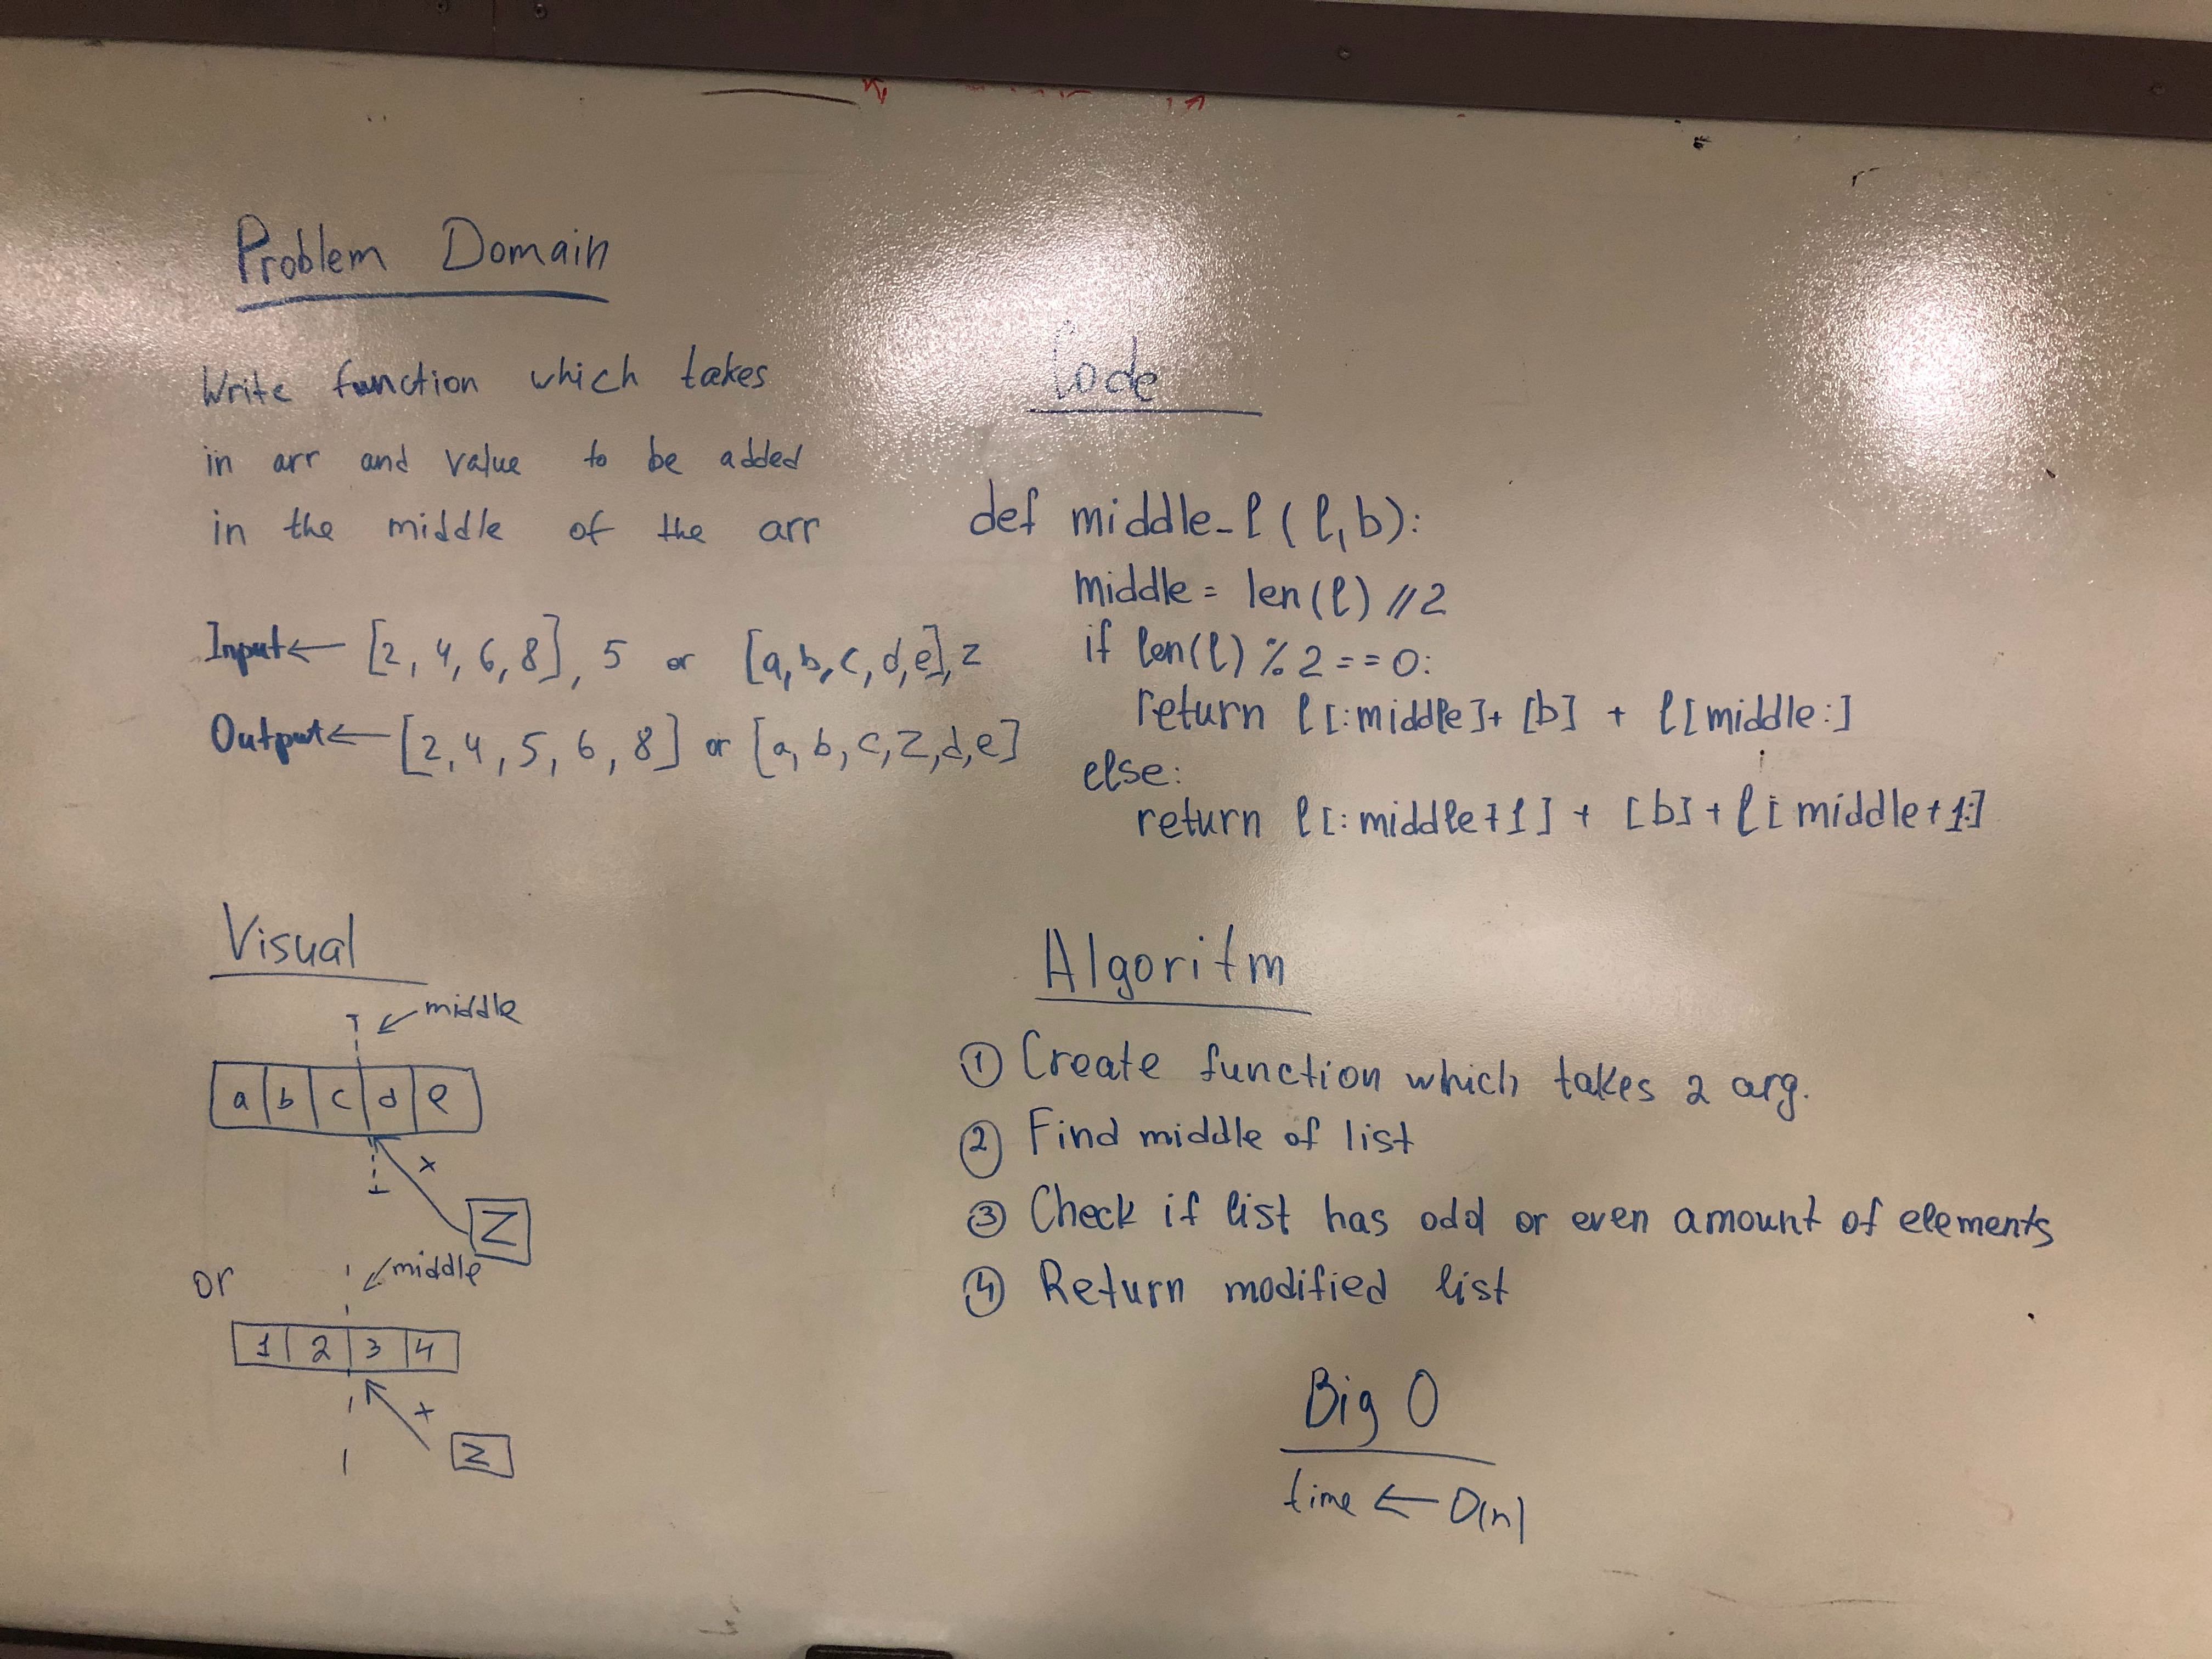 Problem Domain
Write function which takes
in arr and value to be added
in the middle of the arr
Input ← [2, 4, 6, 8], 5 or [a, b, c, d, e], z
Output ← [2, 4, 5, 6, 8] or [a, b, c, z, d, e]
Visual
middle
a b c d e
x
Z
or
middle
1 2 3 4
+
Z
Code
def middle_l(l, b):
middle = len(l) //2
if len(l) % 2 == 0:
return l[:middle] + [b] + l[middle:]
else:
return l[:middle+1] + [b] + l[middle+1:]
Algoritm
① Create function which takes 2 arg.
② Find middle of list
③ Check if list has odd or even amount of elements
④ Return modified list
Big O
time ← O(n)